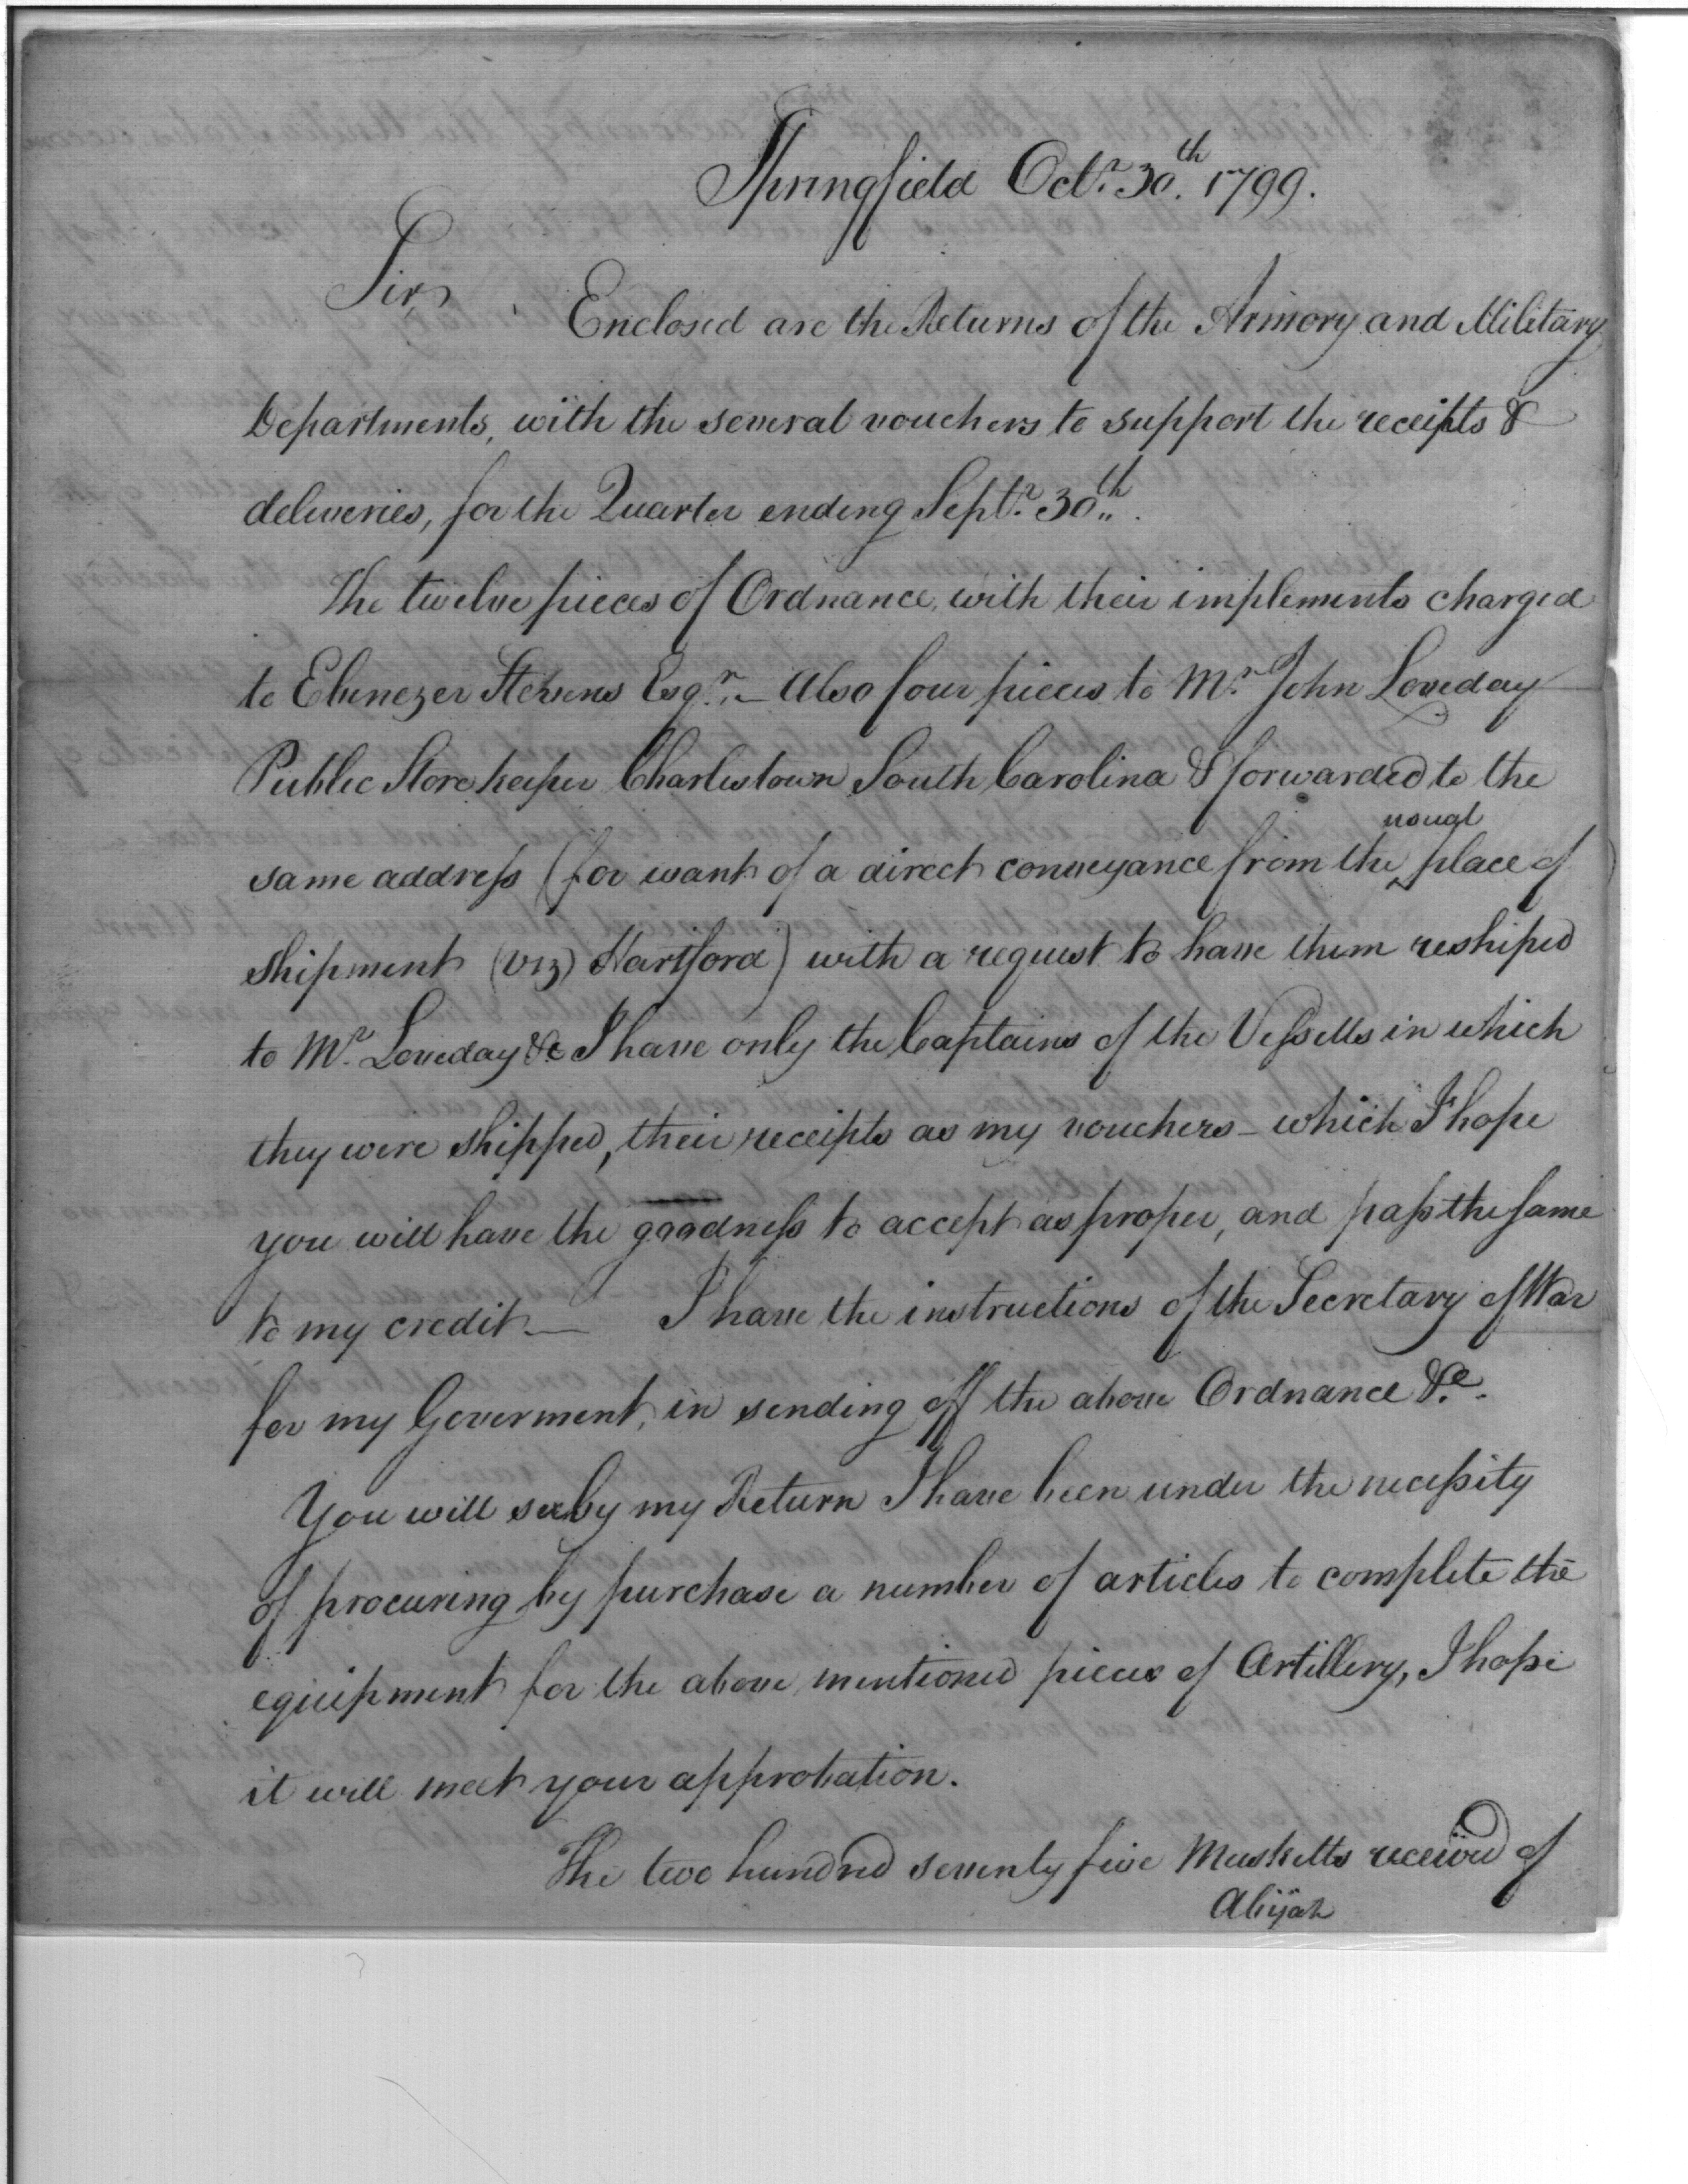 Springfield Octr. 30th. 1799.
Sir,
Enclosed are the Returns of the Armory and Military
Departments, with the several vouchers to support the receipts &
deliveries, for the Quarter ending Septr. 30th.
The twelve pieces of Ordnance, with their implements charged
to Ebenezer Stevens Esqr. – Also four pieces to Mr. John Loveday
Public Storekeeper Charlestown South Carolina & forwarded to the
usual
same address (for want of a direct conveyance from the ^ place of
shipment (viz) Hartford) with a request to have them reshiped
to Mr. Loveday &c I have only the Captains of the Vessells in which
they were shipped, their receipts as my vouchers – which I hope
you will have the goodness to accept as proper, and pass the same
to my credit. — I have the instructions of the Secretary of War
for my Goverment, in sending off the above Ordnance &c.
You will see by my Return I have been under the necessity
of procuring by purchase a number of articles to complete the
equipment for the above mentioned pieces of Artillery, I hope
it will meet your approbation.
The two hundred seventy five Musketts received of
Abijah